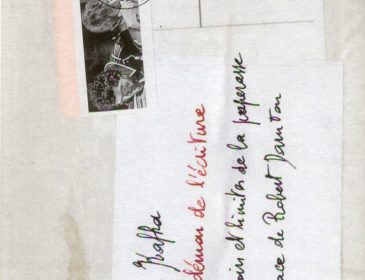 Kafka
démon de l'écriture
et limites de la paperasse
de Robert Darnton